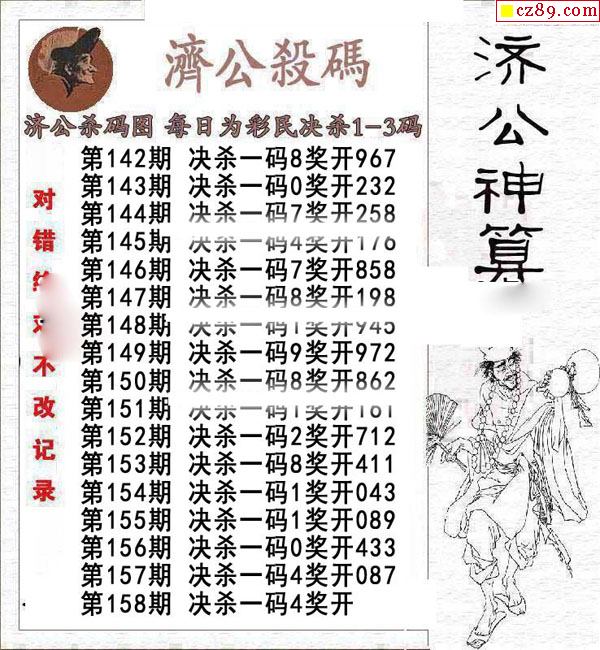 cz89.com
濟公殺碼
济公杀码图 每日为彩民决杀1-3码
第142期 决杀一码8奖开967
第143期 决杀一码0奖开232
第144期 决杀一码7奖开258
第145期 决杀一码4奖开176
第146期 决杀一码7奖开858
第147期 决杀一码8奖开198
第148期 决杀一码1奖开945
第149期 决杀一码9奖开972
第150期 决杀一码8奖开862
第151期 决杀一码1奖开161
第152期 决杀一码2奖开712
第153期 决杀一码8奖开411
第154期 决杀一码1奖开043
第155期 决杀一码1奖开089
第156期 决杀一码0奖开433
第157期 决杀一码4奖开087
第158期 决杀一码4奖开
对错
不改记录
济公神算